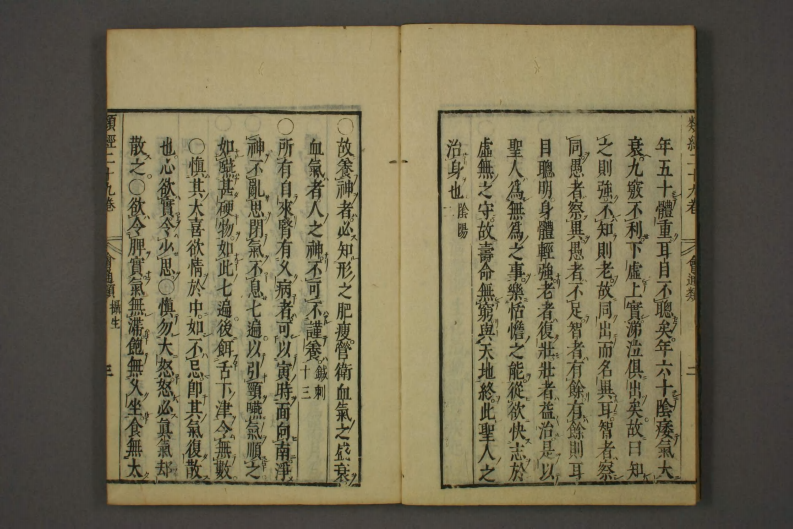 類經二十九卷 會通類 二
年五十體重耳目不聰矣年六十陰痿氣大
衰九竅不利下虛上實涕泣俱出矣故曰知
之則強不知則老故同出而名異耳智者察
同愚者察異愚者不足智者有餘有餘則耳
目聰明身體輕強老者復壯壯者益治是以
聖人爲無爲之事樂恬憺之能從欲快志於
虛無之守故壽命無窮與天地終此聖人之
治身也 陰陽
○故養神者必知形之肥瘦營衛血氣之盛衰
血氣者人之神不可不謹養 鍼刺十三
○所有自來腎有久病者可以寅時面向南淨
神不亂思閉氣不息七遍以引頸嚥氣順之
如嚥甚硬物如此七遍後餌舌下津令無數
○慎其大喜欲情於中如不忌卽其氣復散
也心欲實令少思○慎勿大怒怒必眞氣却
散之○欲令脾實氣無滯飽無久坐食無太
類經二十九卷 會通類 攝生 三